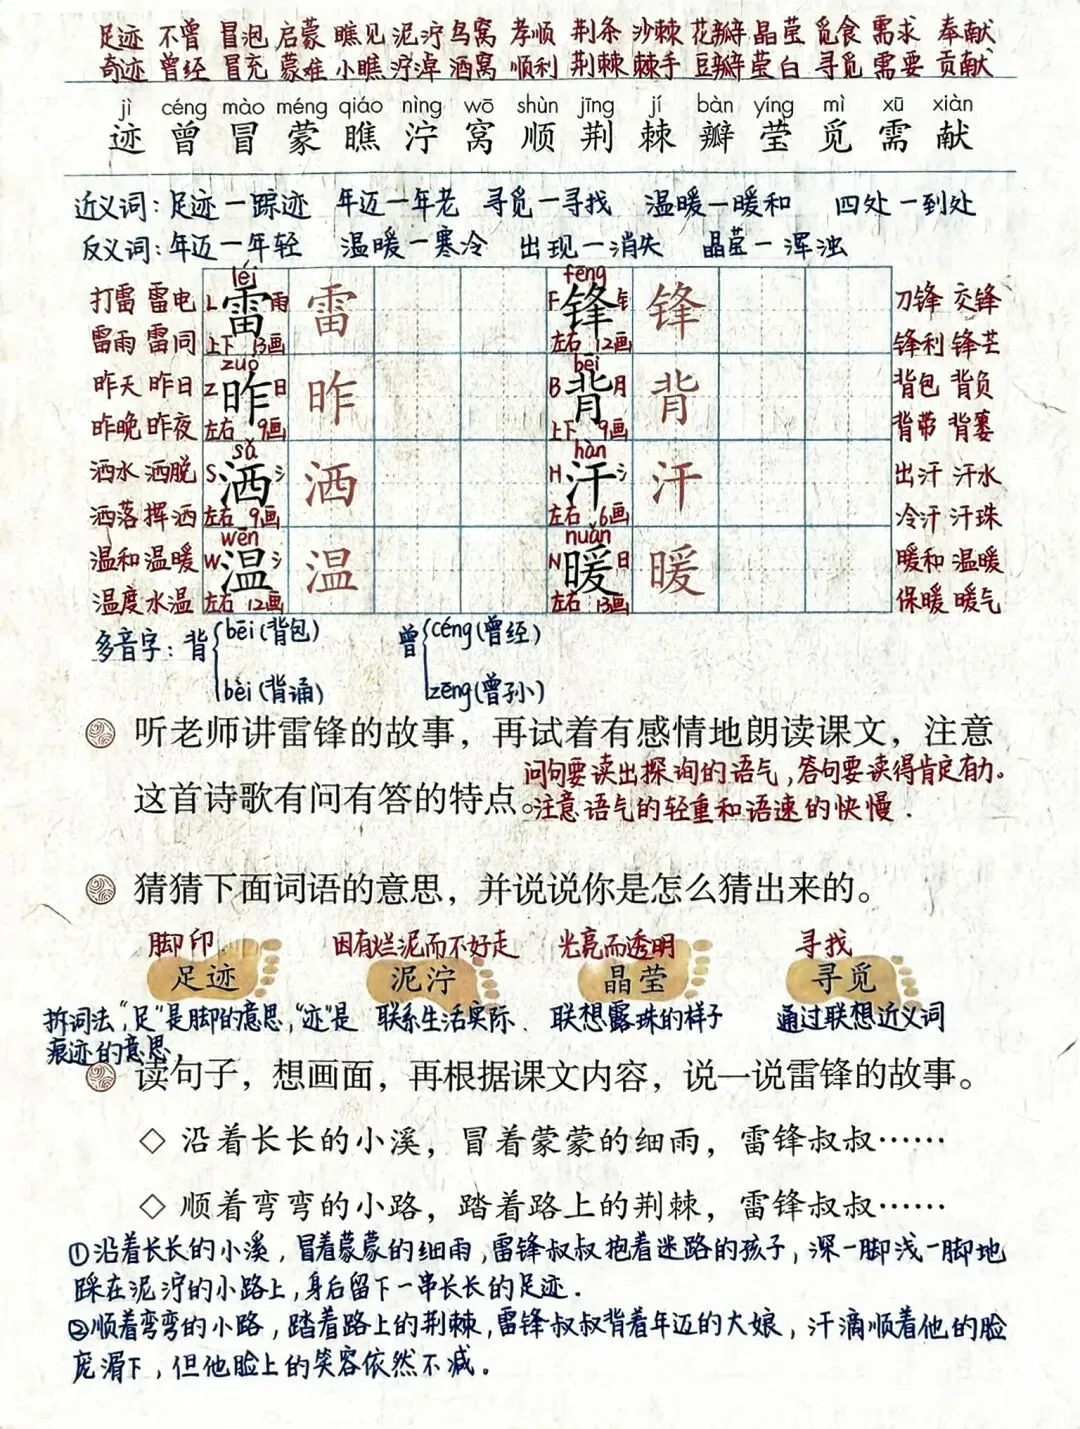 足迹 不曾 冒泡 启蒙 瞧见 泥泞 鸟窝 孝顺 荆条 沙棘 花瓣 晶莹 觅食 需求 奉献
奇迹 曾经 冒充 蒙难 小瞧 泞淖 酒窝 顺利 荆棘 棘手 豆瓣 莹白 寻觅 需要 贡献
jì céng mào méng qiáo nìng wō shùn jīng jí bàn yíng mì xū xiàn
迹 曾 冒 蒙 瞧 泞 窝 顺 荆 棘 瓣 莹 觅 需 献
近义词：足迹－踪迹 年迈－年老 寻觅－寻找 温暖－暖和 四处－到处
反义词：年迈－年轻 温暖－寒冷 出现－消失 晶莹－浑浊
léi fēng
打雷 雷电 L 雷 雨 雷 F 锋 钅 锋 刀锋 交锋
雷雨 雷同 上下 13画 左右 12画 锋利 锋芒
zuó bēi
昨天 昨日 Z 昨 日 昨 B 背 月 背 背包 背负
昨晚 昨夜 左右 9画 上下 9画 背带 背篓
sǎ hàn
洒水 洒脱 S 洒 氵 洒 H 汗 氵 汗 出汗 汗水
洒落 挥洒 左右 9画 左右 6画 冷汗 汗珠
wēn nuǎn
温和 温暖 W 温 氵 温 N 暖 日 暖 暖和 温暖
温度 水温 左右 12画 左右 13画 保暖 暖气
多音字：背 bēi(背包) 曾 céng(曾经)
bèi(背诵) zēng(曾孙)
听老师讲雷锋的故事，再试着有感情地朗读课文，注意
问句要读出探询的语气，答句要读得肯定有力。
这首诗歌有问有答的特点。注意语气的轻重和语速的快慢．
猜猜下面词语的意思，并说说你是怎么猜出来的。
脚印 因有烂泥而不好走 光亮而透明 寻找
足迹 泥泞 晶莹 寻觅
拆词法，"足"是脚的意思，"迹"是 联系生活实际． 联想露珠的样子 通过联想近义词
痕迹的意思，
读句子，想画面，再根据课文内容，说一说雷锋的故事。
◇ 沿着长长的小溪，冒着蒙蒙的细雨，雷锋叔叔……
◇ 顺着弯弯的小路，踏着路上的荆棘，雷锋叔叔……
①沿着长长的小溪，冒着蒙蒙的细雨，雷锋叔叔抱着迷路的孩子，深一脚浅一脚地
踩在泥泞的小路上，身后留下一串长长的足迹．
②顺着弯弯的小路，踏着路上的荆棘，雷锋叔叔背着年迈的大娘，汗滴顺着他的脸
庞滑下，但他脸上的笑容依然不减．